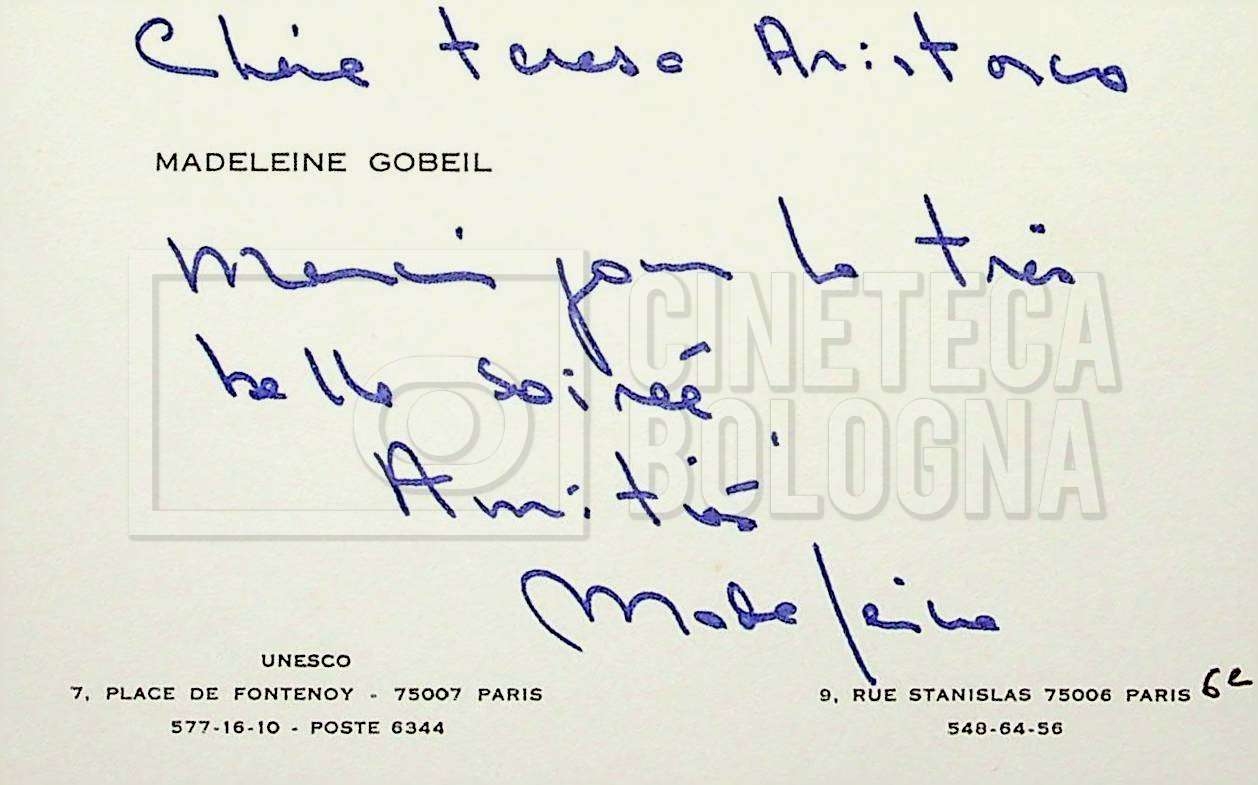 Chère Teresa Aristarco
MADELEINE GOBEIL
Merci pour la très
belle soirée
Amitiés
Madeleine
CINETECA
BOLOGNA
UNESCO
7, PLACE DE FONTENOY - 75007 PARIS
577-16-10 - POSTE 6344
9, RUE STANISLAS 75006 PARIS 6e
548-64-56